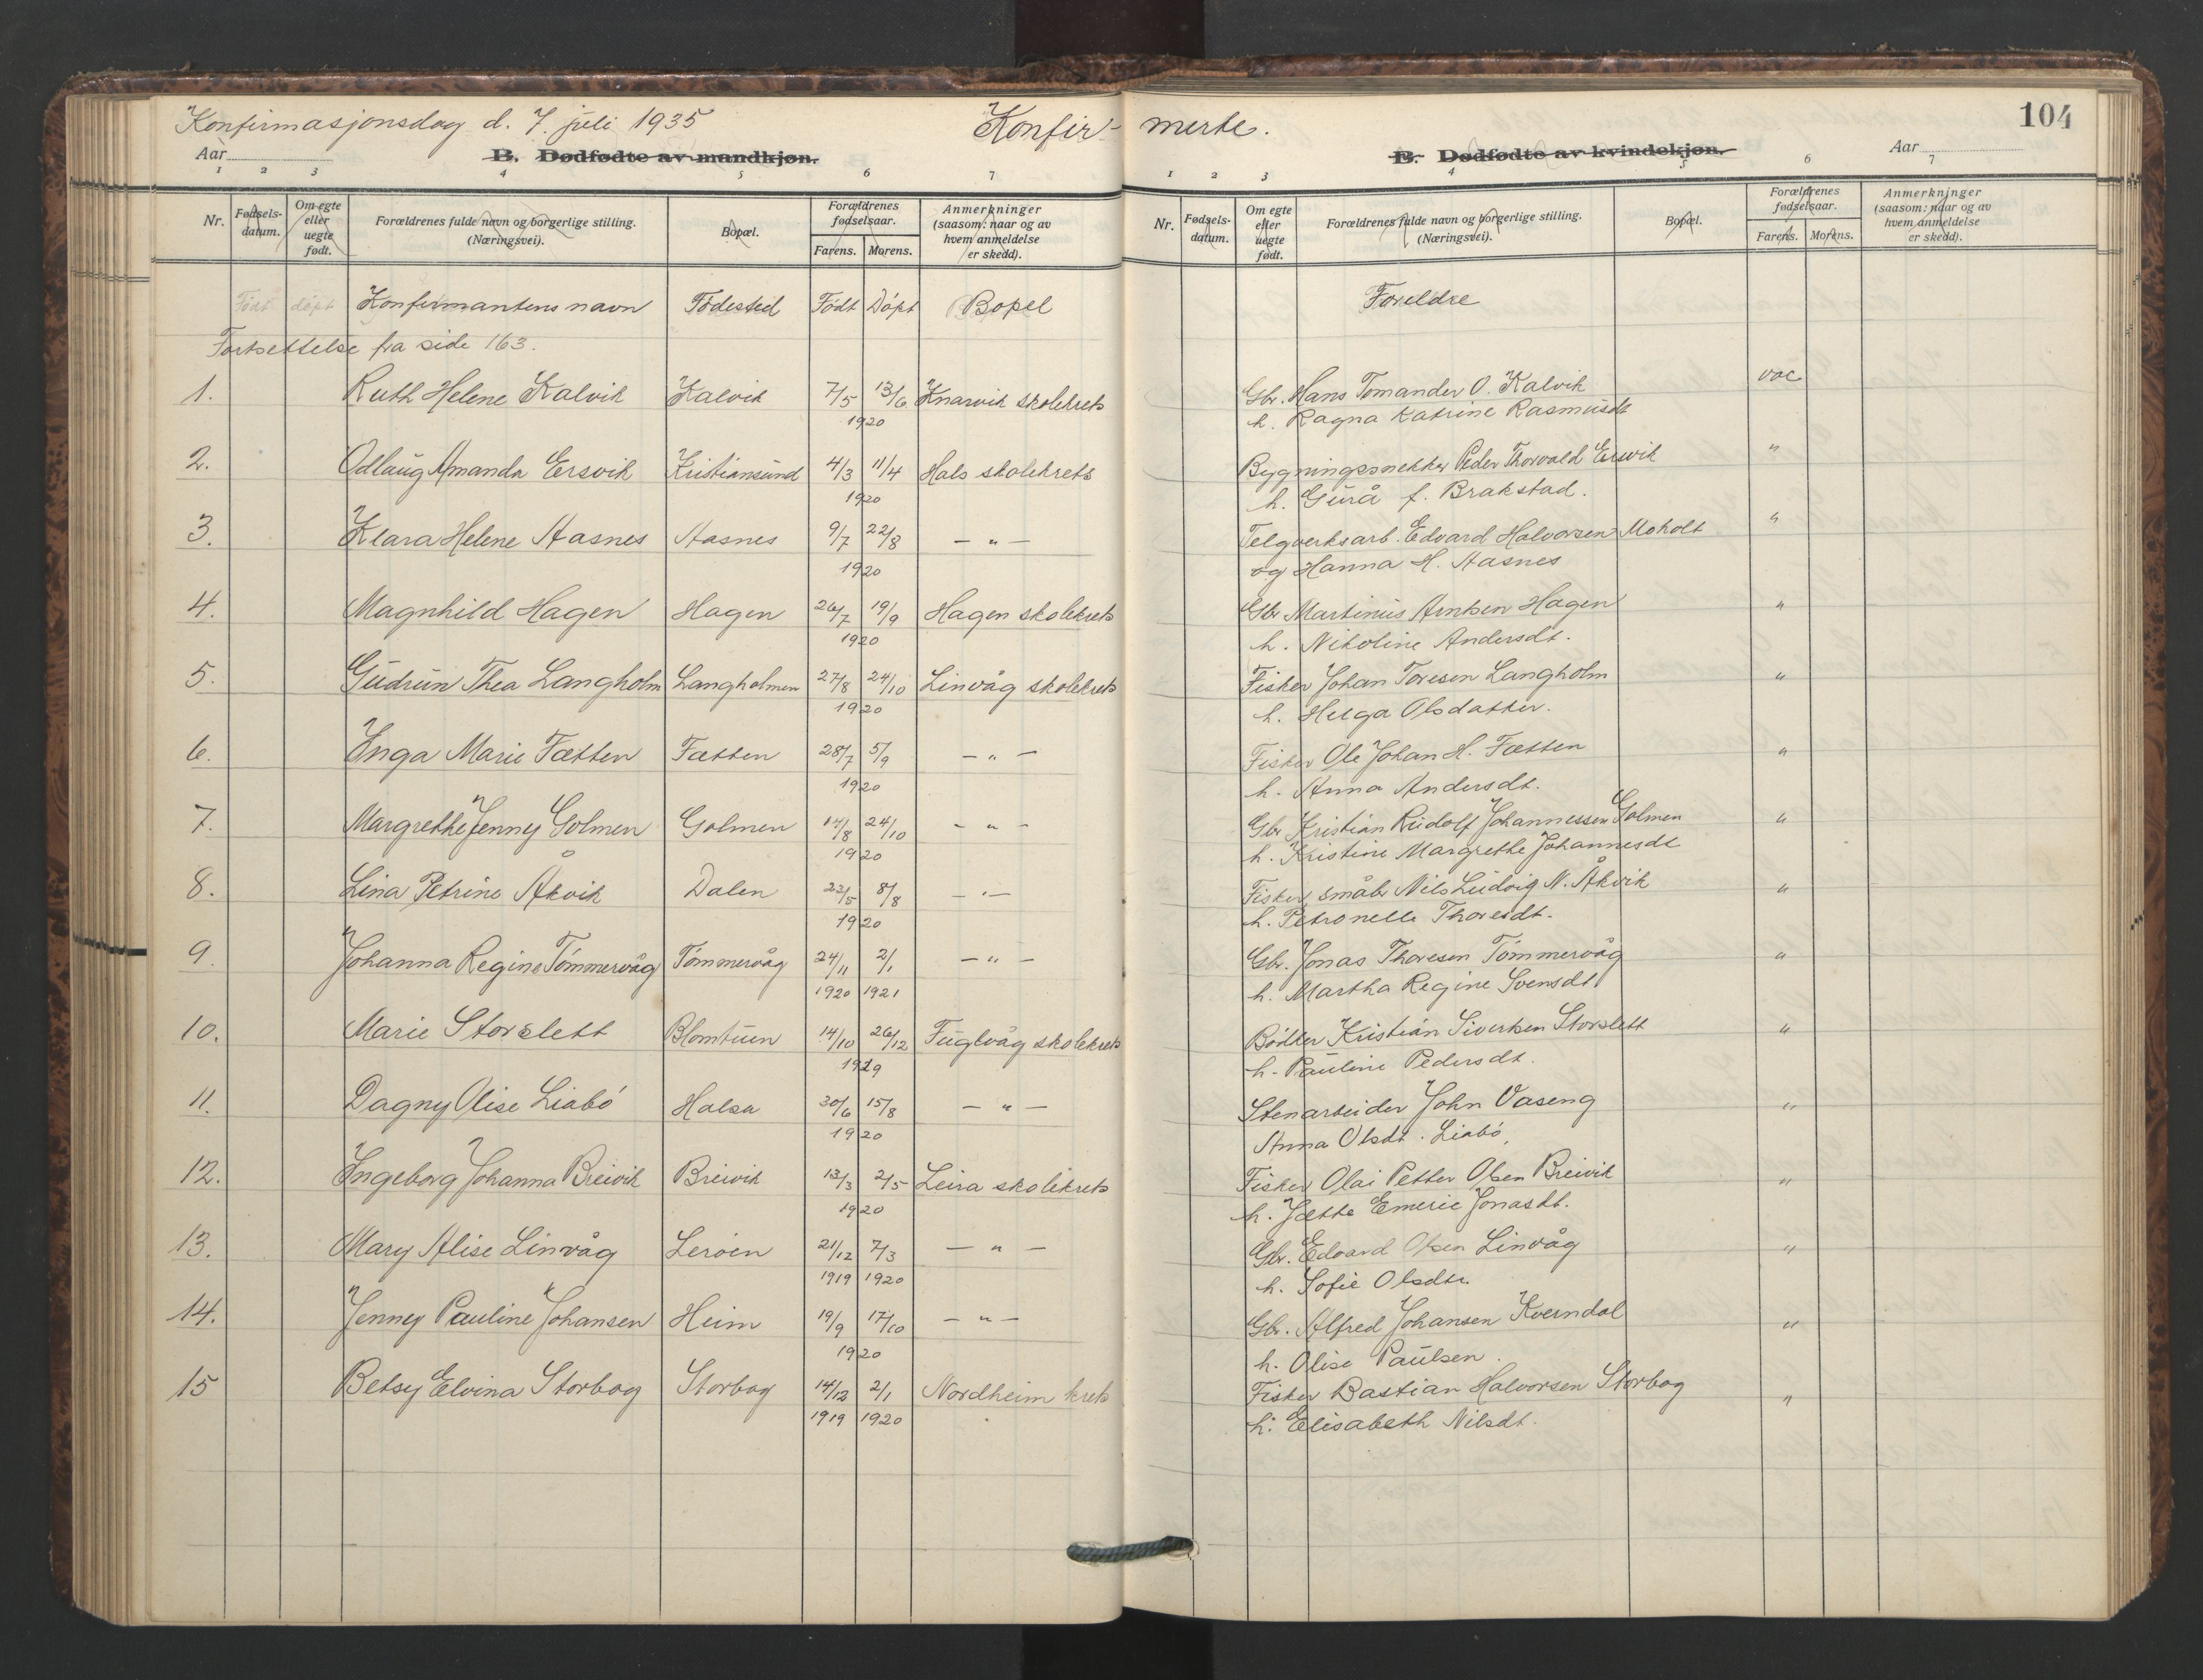 Konfirmasjonsdag d. 7. juli 1935
Konfir-
merte.
104
Aar
B. Dødfødte av mandkjøn.
B. Dødfødte av kvindekjøn.
Aar
1 2 3 4 5 6 7
1 2 3 4 5 6 7
Nr. Fødsels-datum. Om egte eller uegte født. Forældrenes fulde navn og borgerlige stilling. (Næringsvei). Bopæl. Forældrenes fødselsaar. Farens. Morens. Anmerkninger (saasom: naar og av hvem anmeldelse er skedd).
Nr. Fødsels-datum. Om egte eller uegte født. Forældrenes fulde navn og borgerlige stilling. (Næringsvei). Bopæl. Forældrenes fødselsaar. Farens. Morens. Anmerkninger (saasom: naar og av hvem anmeldelse er skedd).
Født døpt Konfirmantens navn Fødested Født Døpt Bopel Foreldre
Fortsettelse fra side 163.
1. Ruth Helene Kalvik Kalvik 7/5 13/6 Knarvik skolekrets Gbr. Hans Tomander O. Kalvik vac
1920 h. Ragna Katrine Rasmusdt
2. Odlaug Amanda Ersvik Kristiansund 4/3 11/4 Hals skolekrets Bygningssnekker Peder Thorvald Ersvik "
1920 h. Gurå f. Brakstad.
3. Klara Helene Aasnes Aasnes 9/7 22/8 — " — Telgverksarb. Edvard Halvorsen Moholt "
1920 og Hanna H. Aasnes
4. Magnhild Hagen Hagen 26/7 19/9 Hagen skolekrets Gbr Martinus Arntsen Hagen "
1920 h. Nikoline Andersdt.
5. Gudrun Thea Langholm Langholmen 27/8 24/10 Linvåg skolekrets Fisker Johan Toresen Langholm "
1920 h. Helga Olsdatter.
6. Inga Marie Fætten Fætten 28/7 5/9 — " — Fisker Ole Johan H. Fætten "
1920 h. Anna Andersdt.
7. Margrethe Jenny Golmen Golmen 17/8 24/10 — " — Gbr Kristian Rudolf Johannessen Golmen "
1920 h. Kristine Margrethe Johannesdt
8. Lina Petrine Åkvik Dalen 23/5 8/8 — " — Fisker, småbr Nils Ludvig N. Åkvik "
1920 h. Petronelle Thoresdt.
9. Johanna Regine Tømmervåg Tømmervåg 24/11 2/1 — " — Gbr. Jonas Thoresen Tømmervåg "
1920 1921 h. Martha Regine Svensdt
10. Marie Storslett Blomtuen 14/10 26/12 Fuglvåg skolekrets Bødker Kristian Sivertsen Storslett "
1919 h. Pauline Pedersdt.
11. Dagny Olise Liabø Halsa 30/6 15/8 — " — Stenarbeider John Vaseng "
1920 Anna Olsdt. Liabø,
12. Ingeborg Johanna Breivik Breivik 13/3 2/5 Leira skolekrets Fisker Olai Petter Olsen Breivik "
1920 h. Jætte Emerie Jonasdt.
13. Mary Alise Linvåg Lerøen 21/12 7/3 — " — Gbr. Edvard Olsen Linvåg "
1919 1920 h. Sofie Olsdtr.
14. Jenney Pauline Johansen Heim 19/9 17/10 — " — Gbr. Alfred Johansen Kverndal "
1920 h. Olise Paulsen.
15 Betsy Elvina Storbog Storbog 14/12 2/1 Nordheim krets Fisker Bastian Halvorsen Storbog "
1919 1920 h. Elisabeth Nilsdt.